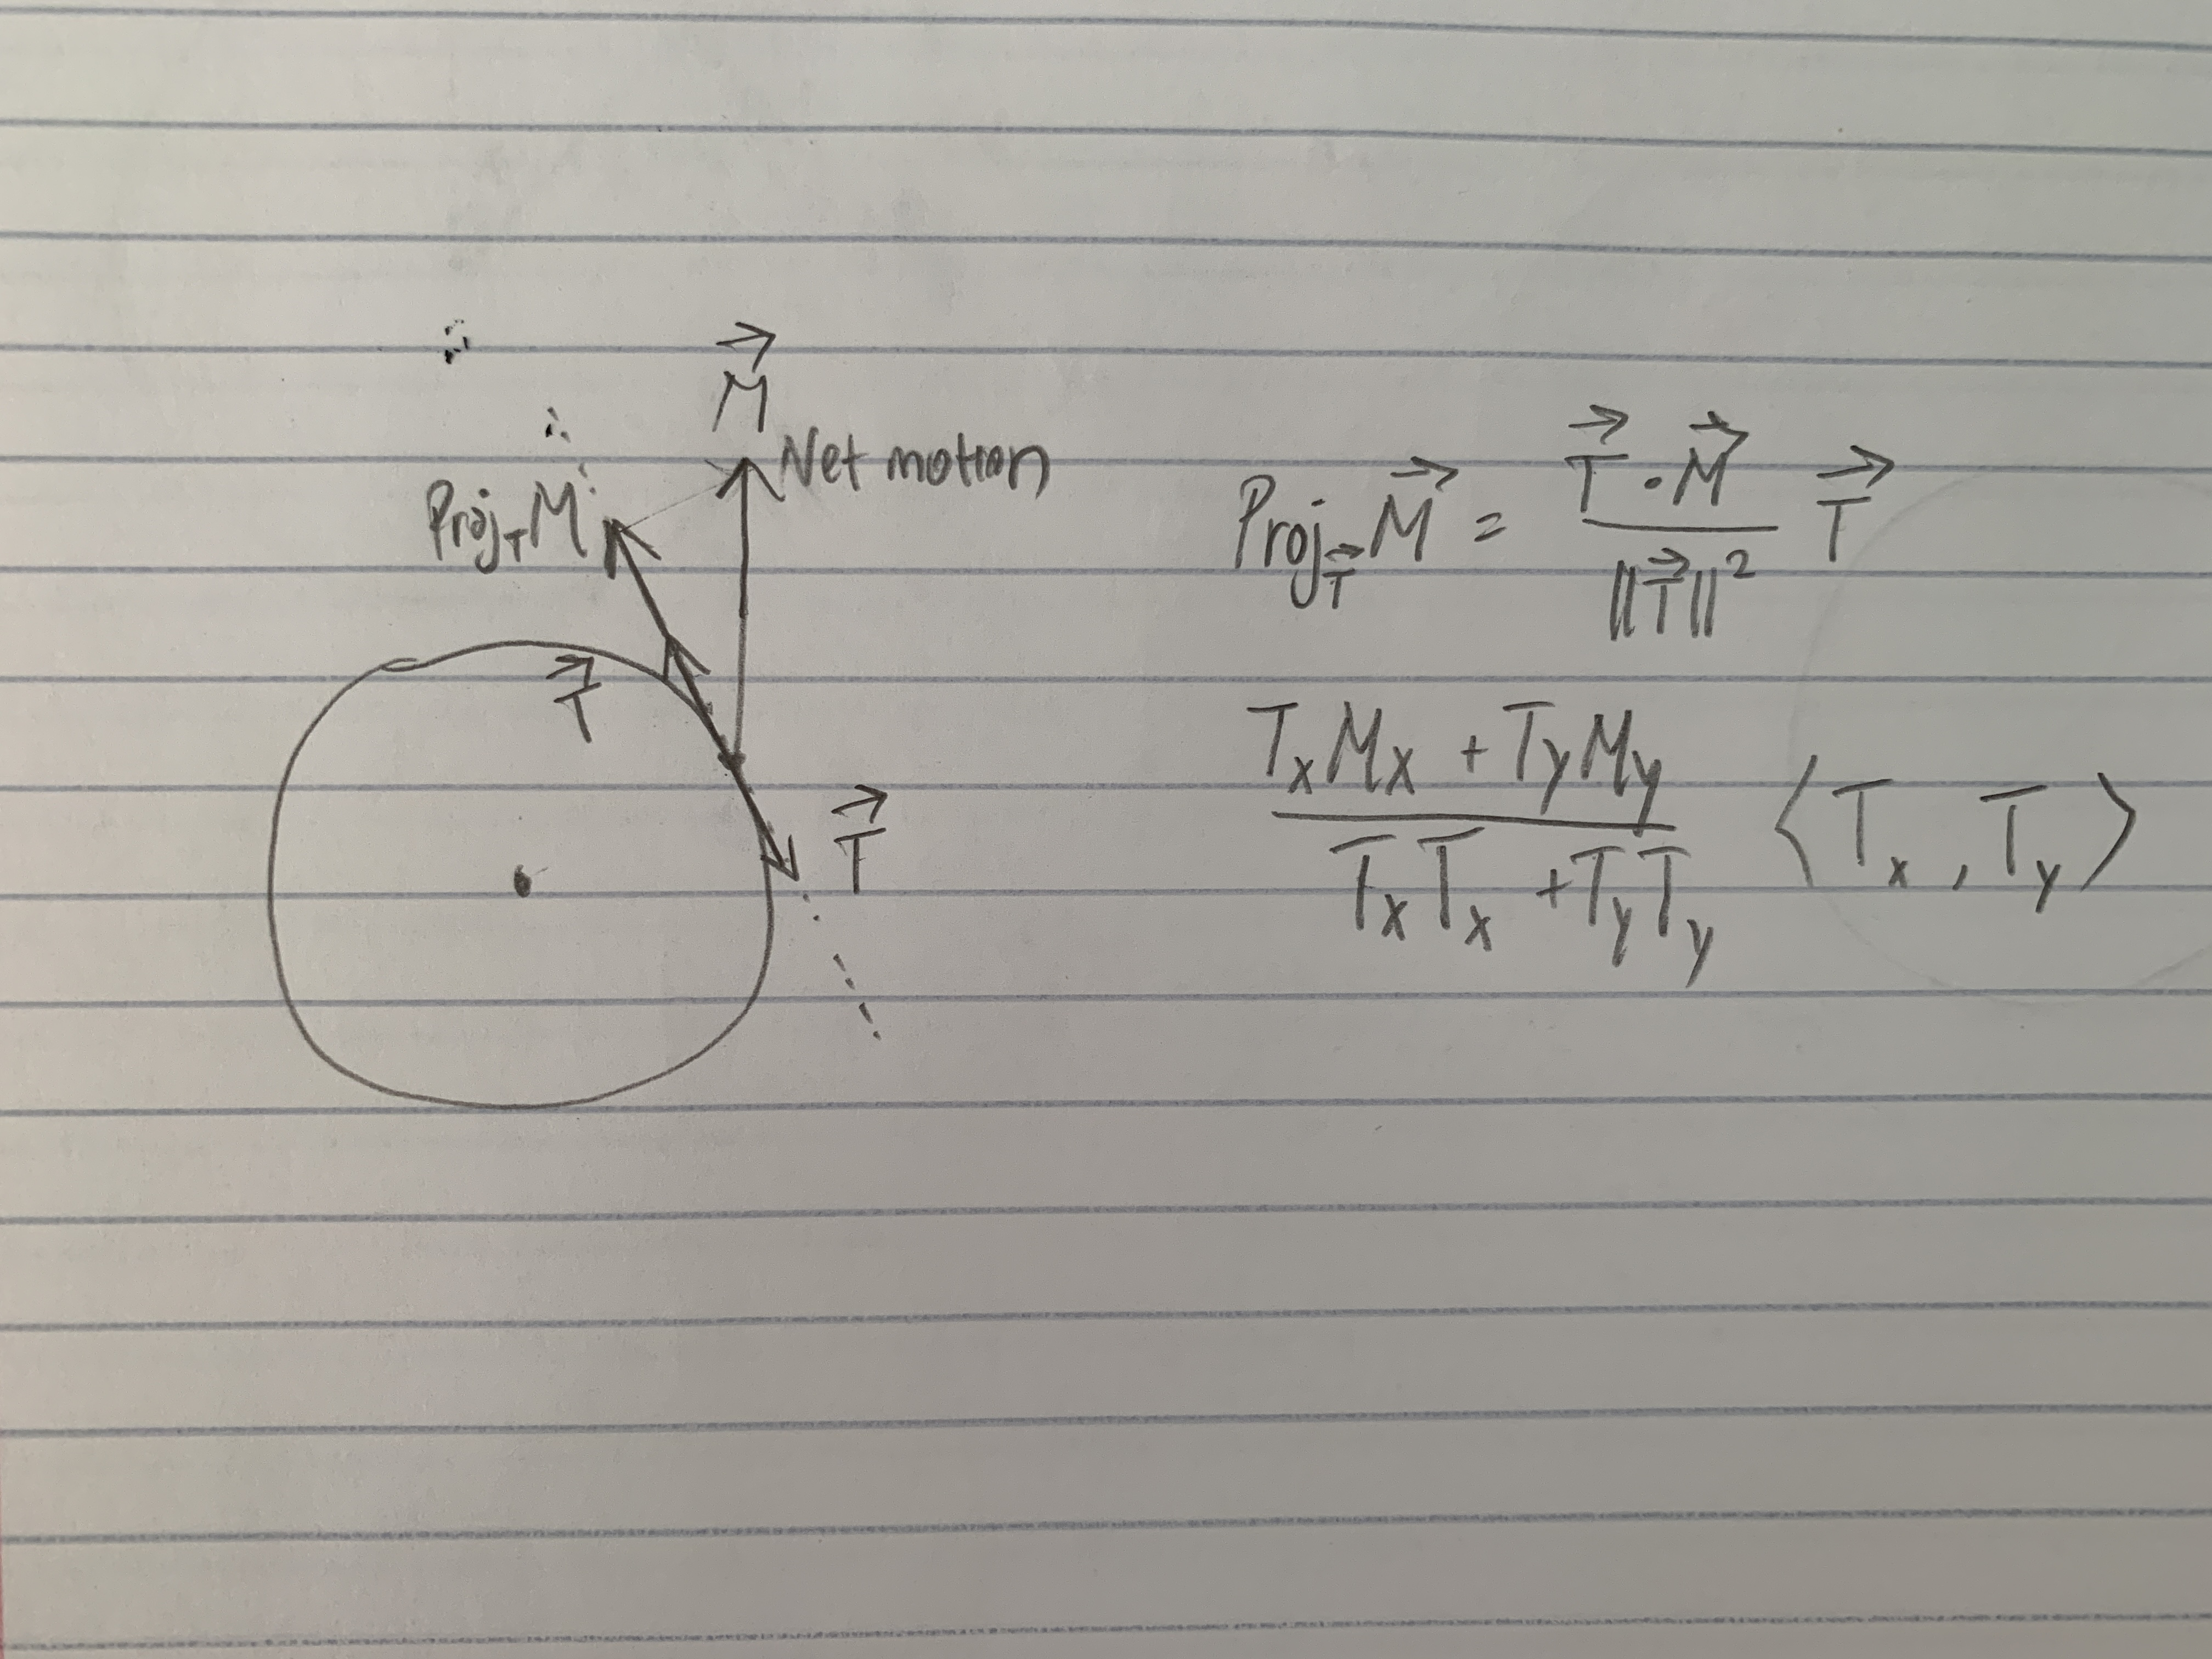 M⃗
Net motion
Proj_T M
T⃗
T⃗
Proj_T⃗ M⃗ = (T⃗ · M⃗) / ||T⃗||² T⃗
(TₓMₓ + TyMy) / (TₓTₓ + TyTy) ⟨Tₓ, Ty⟩